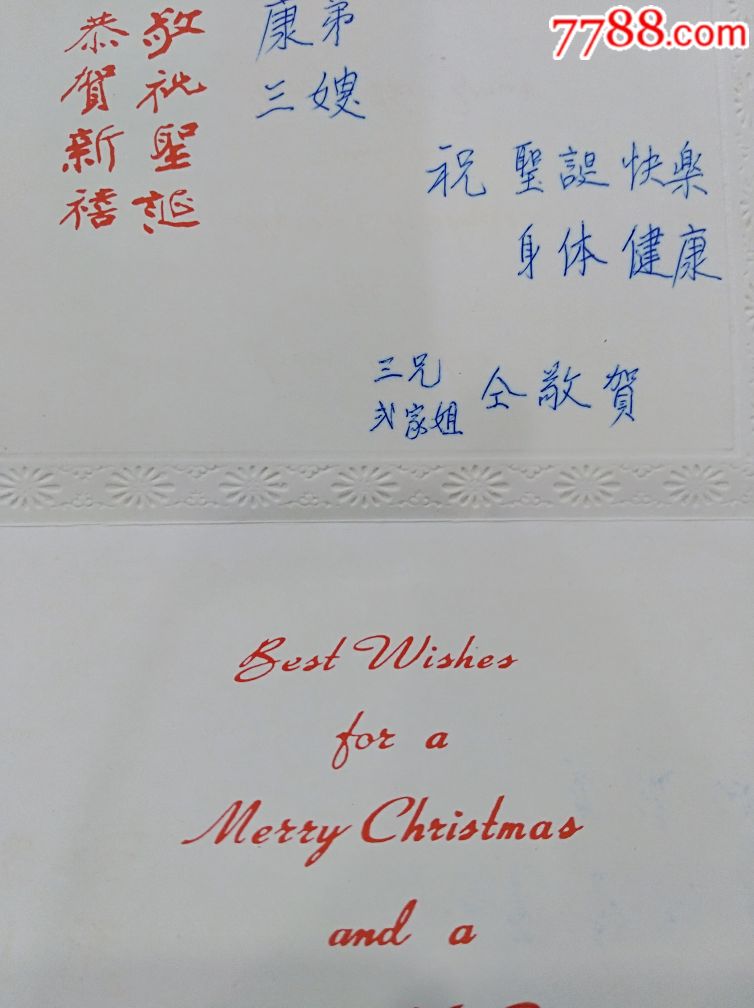 7788.com
敬祝聖誕
恭賀新禧
康弟
三嫂
祝 聖誕 快樂
身体 健康
三兄
弍家姐
仝敬賀
Best Wishes
for a
Merry Christmas
and a